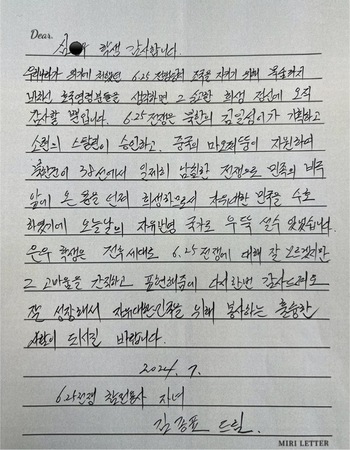 Dear.
심 학생 감사합니다
우리나라가 위기에 처했던 6.25 전쟁에서 조국을 지키기 위해 목숨까지
내놓으신 호국영령분들을 생각하면 그 숭고한 희생 정신에 오직
감사할 뿐입니다. 6.25 전쟁은 북한의 김일성이가 기획하고
소련의 스탈린이 승인하고, 중국의 마오쩌뚱이 지원하여
북한군이 38선에서 일제히 남침한 전쟁으로 민족의 비극
앞에 온 몸을 던져 희생하므로서 자유대한 민국을 수호
하였기에 오늘날의 자유번영 국가로 우뚝 설수 있었습니다.
은우 학생은 전후세대로 6.25 전쟁에 대해 잘 모르겠지만
그 고마움을 간직하고 표현해주어 다시한번 감사드려요
잘 성장해서 자유대한민국을 위해 봉사하는 훌륭한
사람이 되시길 바랍니다.
2024. 7.
6.25전쟁 참전용사 자녀
김종표 드림.
MIRI LETTER